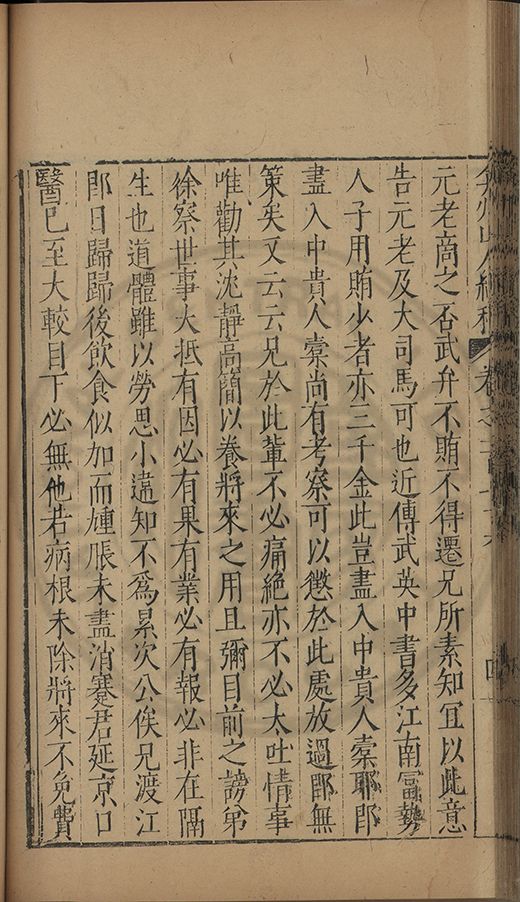 弇州山人續稿 卷之一百七十六 四
元老商之否武弁不賄不得遷兄所素知冝以此意
告元老及大司馬可也近傳武英中書多江南冨勢
人子用賄少者亦三千金此豈盡入中貴人橐耶即
盡入中貴人橐尚有考察可以懲於此處放過即無
策矣又云云兄於此輩不必痛絶亦不必太吐情事
唯勸其沈靜高簡以養將來之用且彌目前之謗弟
徐察世事大抵有因必有果有業必有報必非在隔
生也道體雖以勞思小違知不爲累次公俟兄渡江
即日歸歸後飲食似加而腫脹未盡消蹇君延京口
醫已至大較目下必無他若病根未除將來不免費